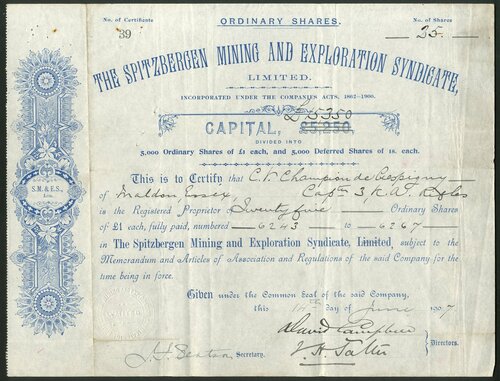 No. of Certificate
39
ORDINARY SHARES.
No. of Shares
25.
THE SPITZBERGEN MINING AND EXPLORATION SYNDICATE,
LIMITED.
INCORPORATED UNDER THE COMPANIES ACTS, 1862-1900.
£5350
CAPITAL, £5,250,
DIVIDED INTO
5,000 Ordinary Shares of £1 each, and 5,000 Deferred Shares of 1s. each.
This is to Certify that C. Champion de Crespigny
of Maldon, Essex, Captn 3, Rifles
is the Registered Proprietor Twenty five Ordinary Shares
of £1 each, fully paid, numbered 6243 to 6267
in The Spitzbergen Mining and Exploration Syndicate, Limited, subject to the
Memorandum and Articles of Association and Regulations of the said Company for the
time being in force.
S.M. & E.S.,
Ltd.
Given under the Common Seal of the said Company,
this day of June 1907
David Campbell
Secretary.
Directors.